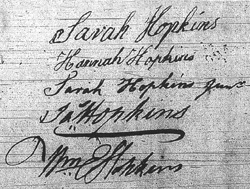 Sarah Hopkins
Hannah Hopkins
Sarah Hopkins Junr
Jas Hopkins
Wm Hopkins